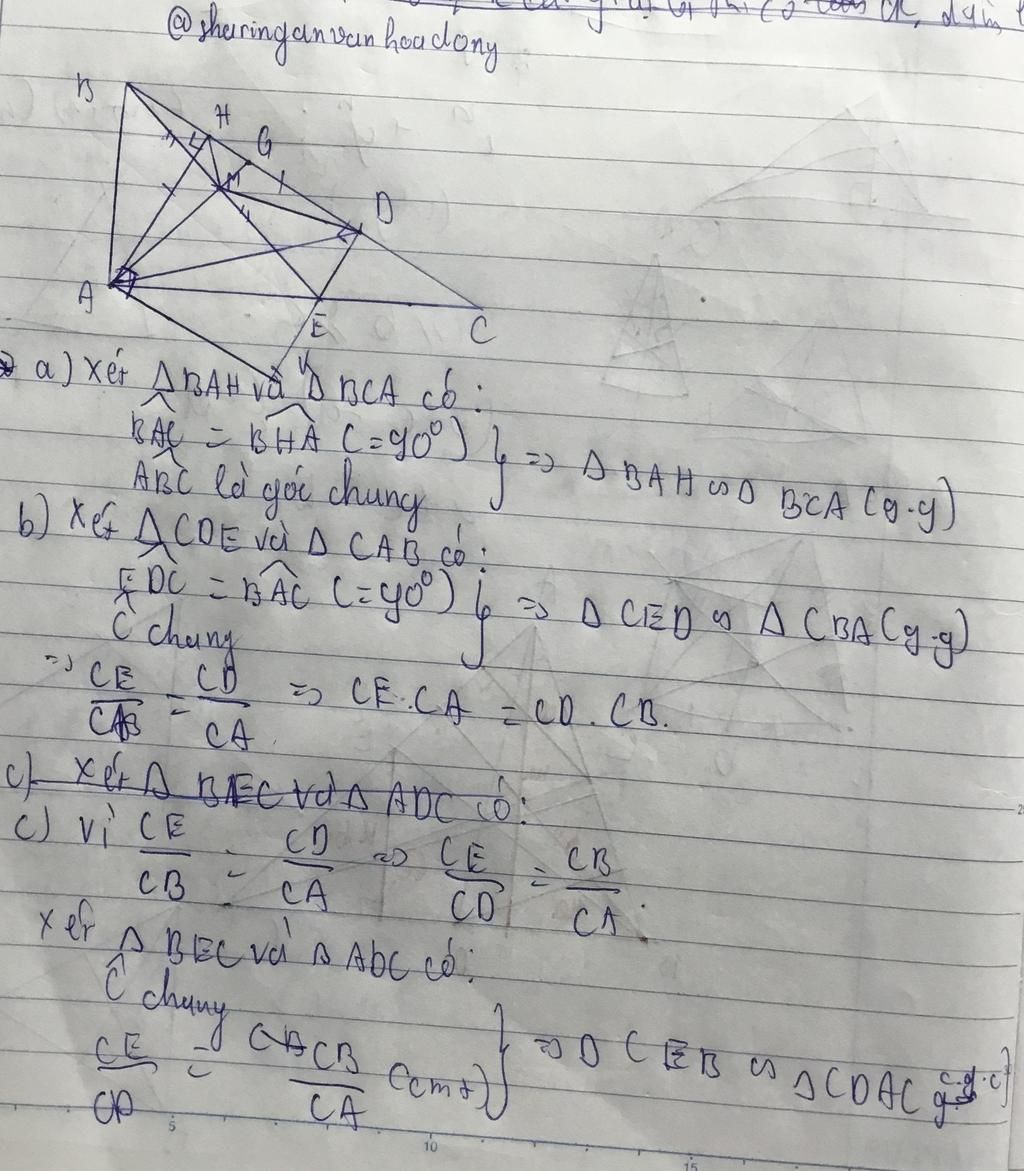 @sharinganvanhoadony
B
H
G
M
D
A
E
C
a) Xét ΔBAH và Δ BCA có:
BAC = BHA (=90°) } => Δ BAH ∽ Δ BCA (g.g)
ABC là góc chung
b) Xét Δ CDE và Δ CAB có:
EDC = BAC (=90°) } => Δ CED ∽ Δ CBA (g.g)
Ĉ chung
=> CE/CB = CD/CA => CE.CA = CD.CB.
c) Xét Δ BEC và Δ ADC có:
c) Vì CE/CB = CD/CA => CE/CD = CB/CA.
Xét Δ BEC và Δ ADC có:
Ĉ chung
CE/CD = CB/CA (cmt) } => Δ CEB ∽ Δ CDA (c.g.c)
5
10
15